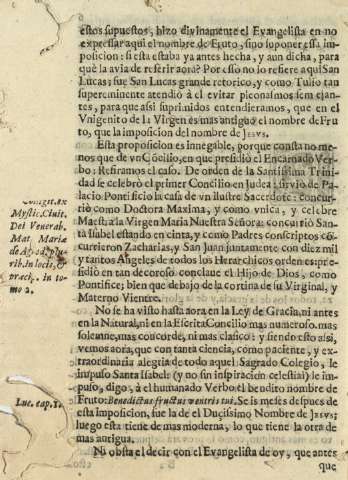 estos supuestos, hizo divinamente el Evangelista en no
expressar aqui el nombre de Fruto, sino suponer essa im-
posicion: si esta estaba ya antes hecha, y aun dicha, para
què la avia de referir aora? Por esso no lo refiere aqui San
Lucas; fue San Lucas grande retorico, y como Tulio tan
supereminente atendiò a el evitar piconasmos semejan-
tes, para que assi suprimidos entendieramos, que en el
Vnigenito de la Virgen es mas antiguo el nombre de Fru-
to, que la imposicion del nombre de JESVS.
Esta proposicion es innegable, porque consta no me-
nos que de vn Cõcilio, en que presidiò el Encarnado Ver-
bo: Refiramos el caso. De orden de la Santissima Trini-
dad se celebrò el primer Concilio en Judea: sirviò de Pa-
lacio Pontificio la casa de vn ilustre Sacerdote: concur-
riò como Doctora Maxima, y como vnica, y celebre
Maestra la Virgen Maria Nuestra Señora: concurriò San-
ta Isabel estando en cinta, y como Padres conscriptos cõ-
currieron Zacharias, y San Juan juntamente con diez mil
y tantos Angeles de todos los Herarchicos orden es: pre-
sidiò en tan decoroso conclaue el Hijo de Dios, como
Pontifice; bien que debajo de la cortina de su Virginal, y
Materno Vientre.
Mystic. Ciuit.
Dei Venerab.
Mat. Mariæ
rib. in locis, &
prœcp. in to
mo 2.
No se ha visto hasta aora en la Ley de Gracia, ni antes
en la Natural, ni en la Escrita Concilio mas numeroso, mas
solemne, mas concorde, ni mas clasico: y siendo esto assi,
vemos aora, que con tanta ciencia, como paciente, y ex-
traordinaria alegria de todo aquel Sagrado Colegio, le
impuso Santa Isabel (y no sin inspiracion celestial) le im-
puso, digo, à el humanado Verbo el bendito nombre de
Fruto: Benedictus fructus ventris tui. Seis meses despues de
esta imposicion, fue la de el Dulcissimo Nombre de JESVS;
luego esta tiene de mas moderna, lo que tiene la otra de
mas antigua.
Luc. cap. 1.
Ni obsta el decir con el Evangelista de oy, que antes
que